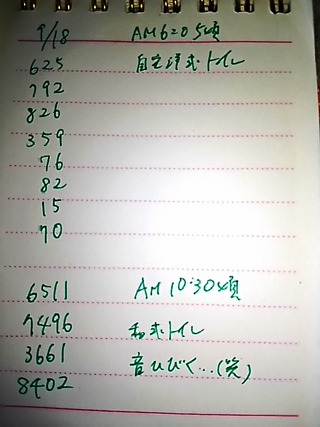 9/18 AM6:05頃
625 自宅洋式トイレ
792
826
359
76
82
15
70
6511 AM10:30頃
7496 和式トイレ
3661 音ひびく…(笑)
8402